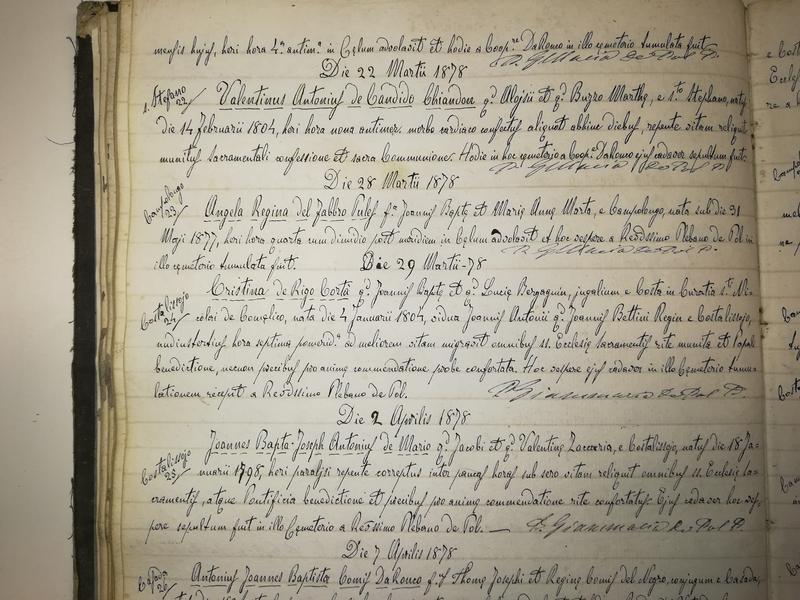 mensis hujus, hori hora 4ª antim.ª in Cęlum advolavit et hodie a Coop.re DaRonco in illo cęmeterio tumulata fuit.
Die 22 Martii 1878
S. Stefano
22
Valentinus Antonius de Candido Chiandon q.m Aloisii et q.m Buzzo Marthę, e S.to Stephano, natus
die 14 Februarii 1804, heri hora nona antimer. morbo cardiaco confectus aliquot abhinc diebus, repente vitam reliquit
munitus sacramentali confessione et sacra Communione. Hodie in hoc cęmeterio a Coop.e DaRonco ejus cadaver sepultum fuit.
Die 28 Martii 1878
Campolongo
23
Angela Regina del Fabbro Pules f.a Joannis Baptę et Marię Annę Marta, e Campolongo, nata sub die 31
Maji 1877, heri hora quarta cum dimidio post meridiem in Cęlum advolavit et hoc vespere a Revdissimo Plebano De Pol in
illo cęmeterio tumulata fuit.
Die 29 Martii-78
Costalissojo
24
Cristina de Rigo Cortà q.m Joannis Baptę et q.m Lucię Bergagnin, jugalium e Costa in Curatia S.ti Ni-
colai de Comelico, nata die 4 Januarii 1804, vidua Joannis Antonii q.m Joannis Bettini Regin e Costalissojo,
nudiustertius hora septima pomerid.ª ad meliorem vitam migravit omnibus SS. Ecclesię sacramentis rite munita et Papali
benedictione, necnon precibus pro animę commendatione probe confortata. Hoc vespere ejus cadaver in illo Cęmeterio tumu-
lationem recepit a Revdissimo Plebano De Pol.
P. Gianmaria De Pol P.
Die 2 Aprilis 1878
Costalissojo
25
Joannes Bapta-Joseph Antonius de Mario q.m Jacobi et q.m Valentinę Zaccaria, e Costalissojo, natus die 18 Ja-
nuarii 1798, heri paralysi repente correptus inter paucas horas sub sero vitam reliquit omnibus SS. Ecclesię Sa-
cramentis, atque Pontificia benedictione et precibus pro animę commendatione rite confortatus. Ejus cadaver hoc ves-
pere sepultum fuit in illo Cęmeterio a Revssimo Plebano De Pol. — P. Gianmaria De Pol P.
Die 7 Aprilis 1878
Casada
26
Antonius Joannes Baptista Comis DaRonco f.us Thomę Josephi et Reginę Comis del Negro, conjugum e Casada,